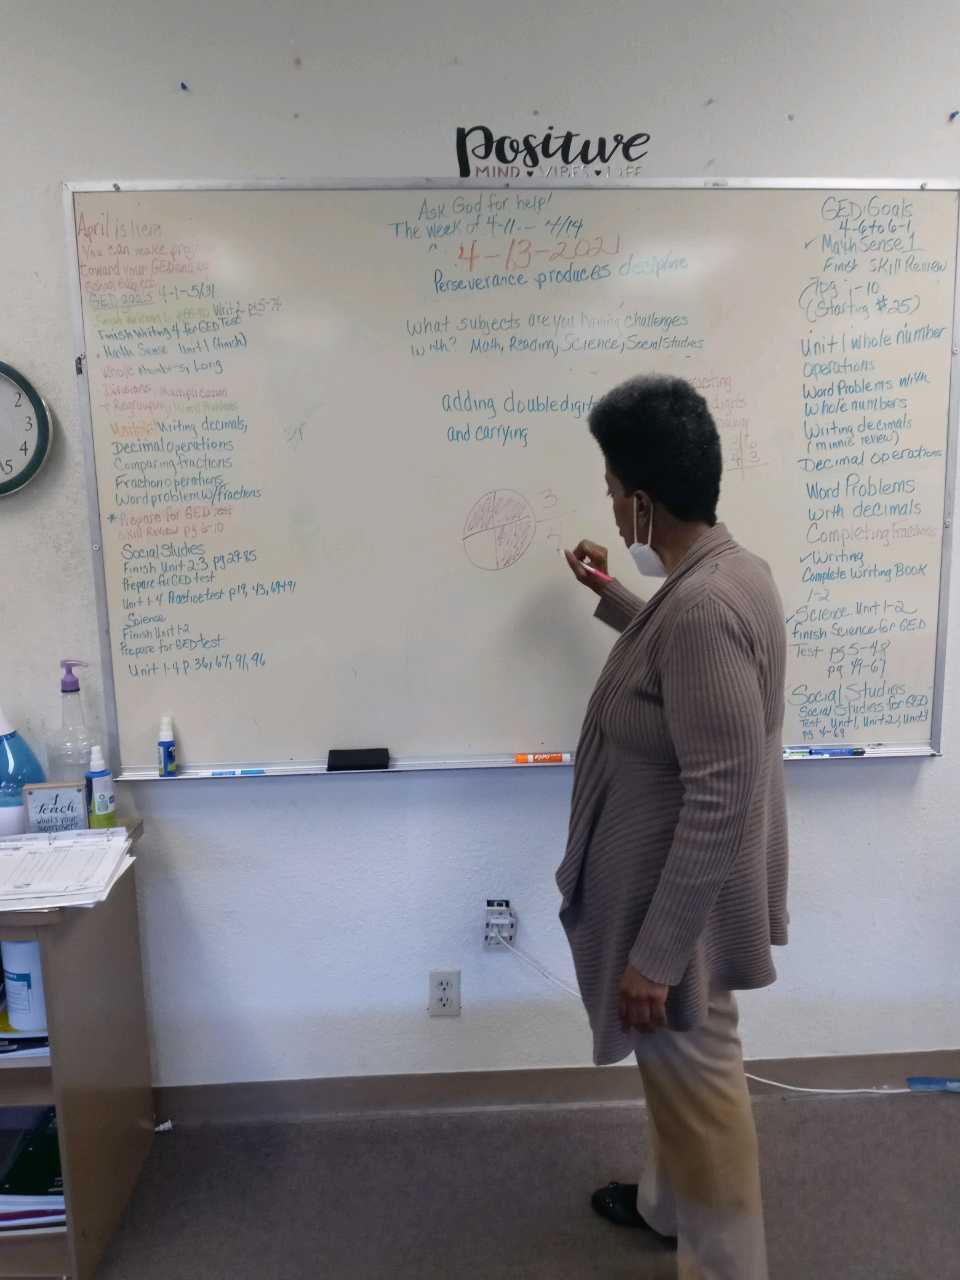 positive
MIND VIBES LIFE
Ask God for help!
The week of 4-11 - 4/14
4-13-2021
Perseverance produces discipline
What subjects are you having challenges
with? Math, Reading, Science, Social Studies
adding double digit
and carrying
3
4
April is here
You can make
toward your GED and
GED 2025 4-1-5/31
Finish Writing 4 for GED Test
Math Sense Unit 1 (finch)
Whole numbers, Long
Divisions, Multiplication
+ Regrouping, Word Problems
Writing decimals,
Decimal operations
Comparing fractions
Fraction operations
Word problem w/fractions
* Prepare for GED test
Skill Review pg 6-10
Social Studies
Finish Unit 2-3, pg 29-85
Prepare for GED test
Unit 1-4 Practice test p 19, 43, 69+91
Science
Finish Unit 1-2
Prepare for GED test
Unit 1-4 p. 36, 67, 91, 96
GED Goals
4-6 to 6-1
✓ Math Sense 1
Finish Skill Review
pg 1-10
(Starting #25)
Unit 1 whole number
operations
Word Problems with
whole numbers
Writing decimals
(minnie review)
Decimal operations
Word Problems
with decimals
Completing fractions
✓ Writing
Complete Writing Book
1-2
✓ Science Unit 1-2
Finish Science for GED
Test pg 5-48
pg 49-67
Social Studies
Social Studies for GED
Test, Unit 1, Unit 2, Unit
pg 4-69
2
3
4
5
I
Teach
what's your
superpower?
EXPO